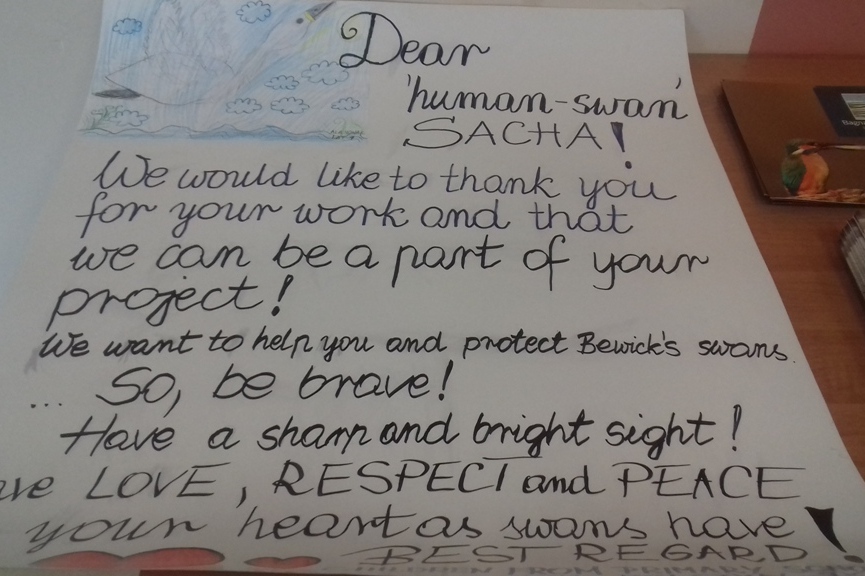 Dear
'human-swan'
SACHA!
We would like to thank you
for your work and that
we can be a part of your
project!
We want to help you and protect Bewick's swans.
... So, be brave!
Have a sharp and bright sight!
LOVE, RESPECT and PEACE
your heart as swans have!
BEST REGARD
CHILDREN FROM PRIMARY